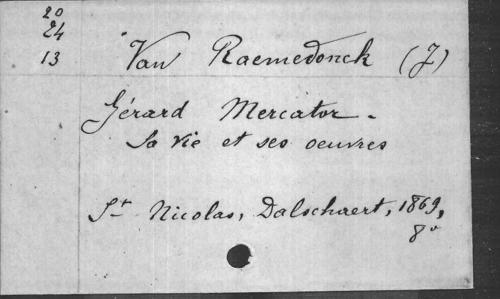 20
24
13
Van Raemedonck (J)
Gérard Mercator.
Sa vie et ses oeuvres
St Nicolas, Dalschaert, 1869,
8o